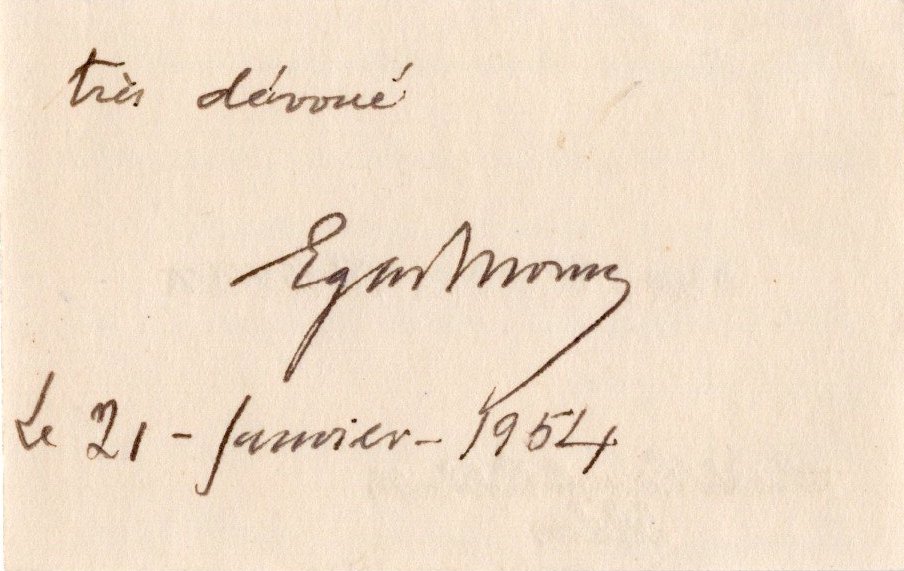 très dévoué
Egas Moniz
Le 21 - Janvier - 1954